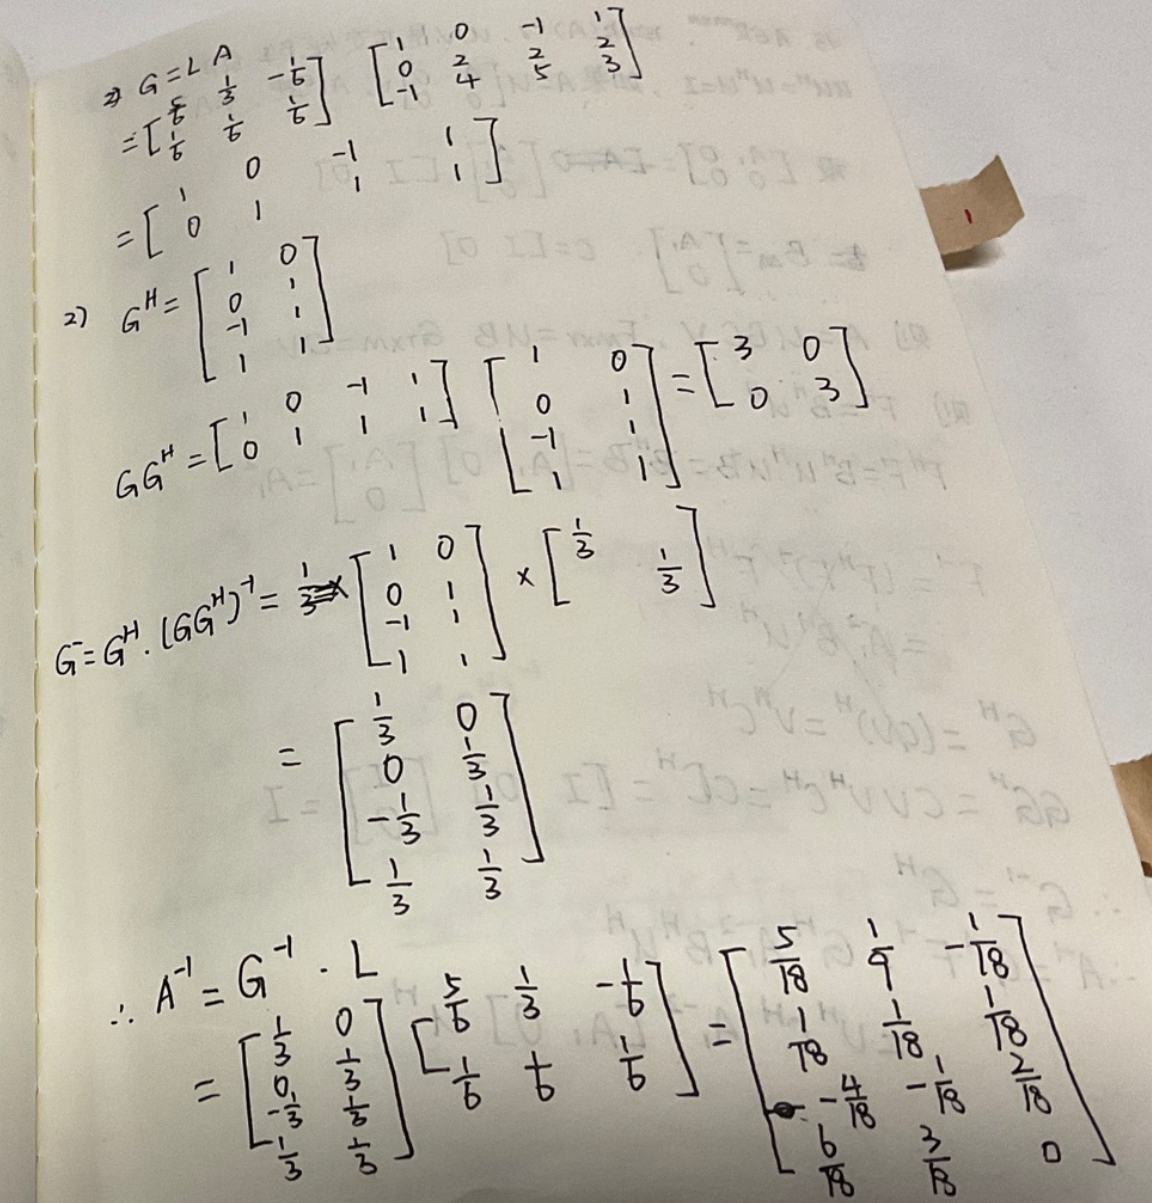 2) G = L A
= [ 5/6 1/3 -1/6 ; 1/6 1/6 1/6 ] [ 1 0 -1 1 ; 0 2 2 2 ; -1 4 5 3 ]
= [ 1 0 -1 1 ; 0 1 1 1 ]
2) G^H = [ 1 0 ; 0 1 ; -1 1 ; 1 1 ]
GG^H = [ 1 0 -1 1 ; 0 1 1 1 ] [ 1 0 ; 0 1 ; -1 1 ; 1 1 ] = [ 3 0 ; 0 3 ]
G^- = G^H · (GG^H)^-1 = [ 1 0 ; 0 1 ; -1 1 ; 1 1 ] × [ 1/3 ; 1/3 ]
= [ 1/3 0 ; 0 1/3 ; -1/3 1/3 ; 1/3 1/3 ]
∴ A^-1 = G^-1 · L
= [ 1/3 0 ; 0 1/3 ; -1/3 1/3 ; 1/3 1/3 ] [ 5/6 1/3 -1/6 ; 1/6 1/6 1/6 ] = [ 5/18 1/9 -1/18 ; 1/18 1/18 1/18 ; -4/18 -1/18 2/18 ; 6/18 3/18 0 ]